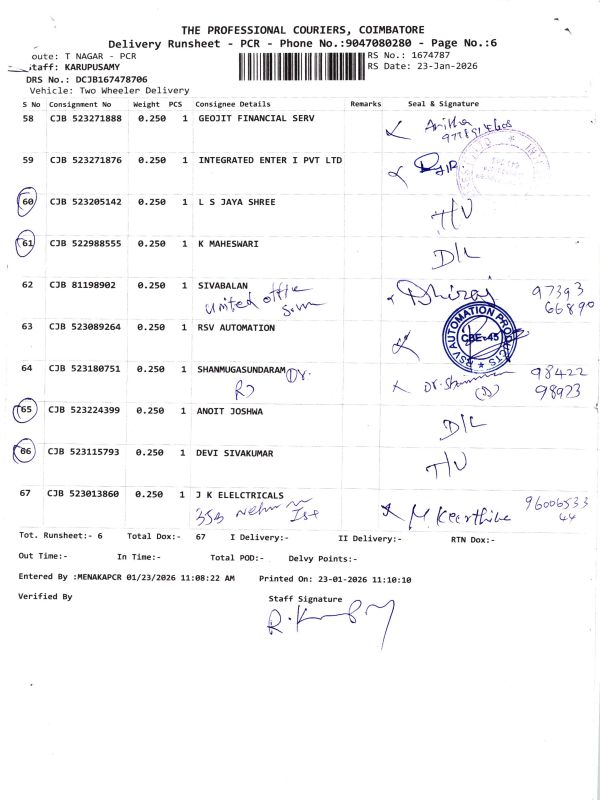 THE PROFESSIONAL COURIERS, COIMBATORE
Delivery Runsheet - PCR - Phone No.:9047080280 - Page No.:6
oute: T NAGAR - PCR
RS No.: 1674787
taff: KARUPUSAMY
RS Date: 23-Jan-2026
DRS No.: DCJB167478706
Vehicle: Two Wheeler Delivery
S No Consignment No Weight PCS Consignee Details Remarks Seal & Signature
58 CJB 523271888 0.250 1 GEOJIT FINANCIAL SERV
Anitha
59 CJB 523271876 0.250 1 INTEGRATED ENTER I PVT LTD
60 CJB 523205142 0.250 1 L S JAYA SHREE
61 CJB 522988555 0.250 1 K MAHESWARI
D/L
62 CJB 81198902 0.250 1 SIVABALAN
united office
Dhiraj 97393
66890
63 CJB 523089264 0.250 1 RSV AUTOMATION
RSV AUTOMATION PRODUCTS
CBE-45
64 CJB 523180751 0.250 1 SHANMUGASUNDARAM Dr.
98422
98923
65 CJB 523224399 0.250 1 ANOIT JOSHWA
D/L
66 CJB 523115793 0.250 1 DEVI SIVAKUMAR
T/V
67 CJB 523013860 0.250 1 J K ELELCTRICALS
353 Nehru
M. Keerthika 96006533
44
Tot. Runsheet:- 6 Total Dox:- 67 I Delivery:- II Delivery:- RTN Dox:-
Out Time:- In Time:- Total POD:- Delvy Points:-
Entered By :MENAKAPCR 01/23/2026 11:08:22 AM Printed On: 23-01-2026 11:10:10
Verified By Staff Signature